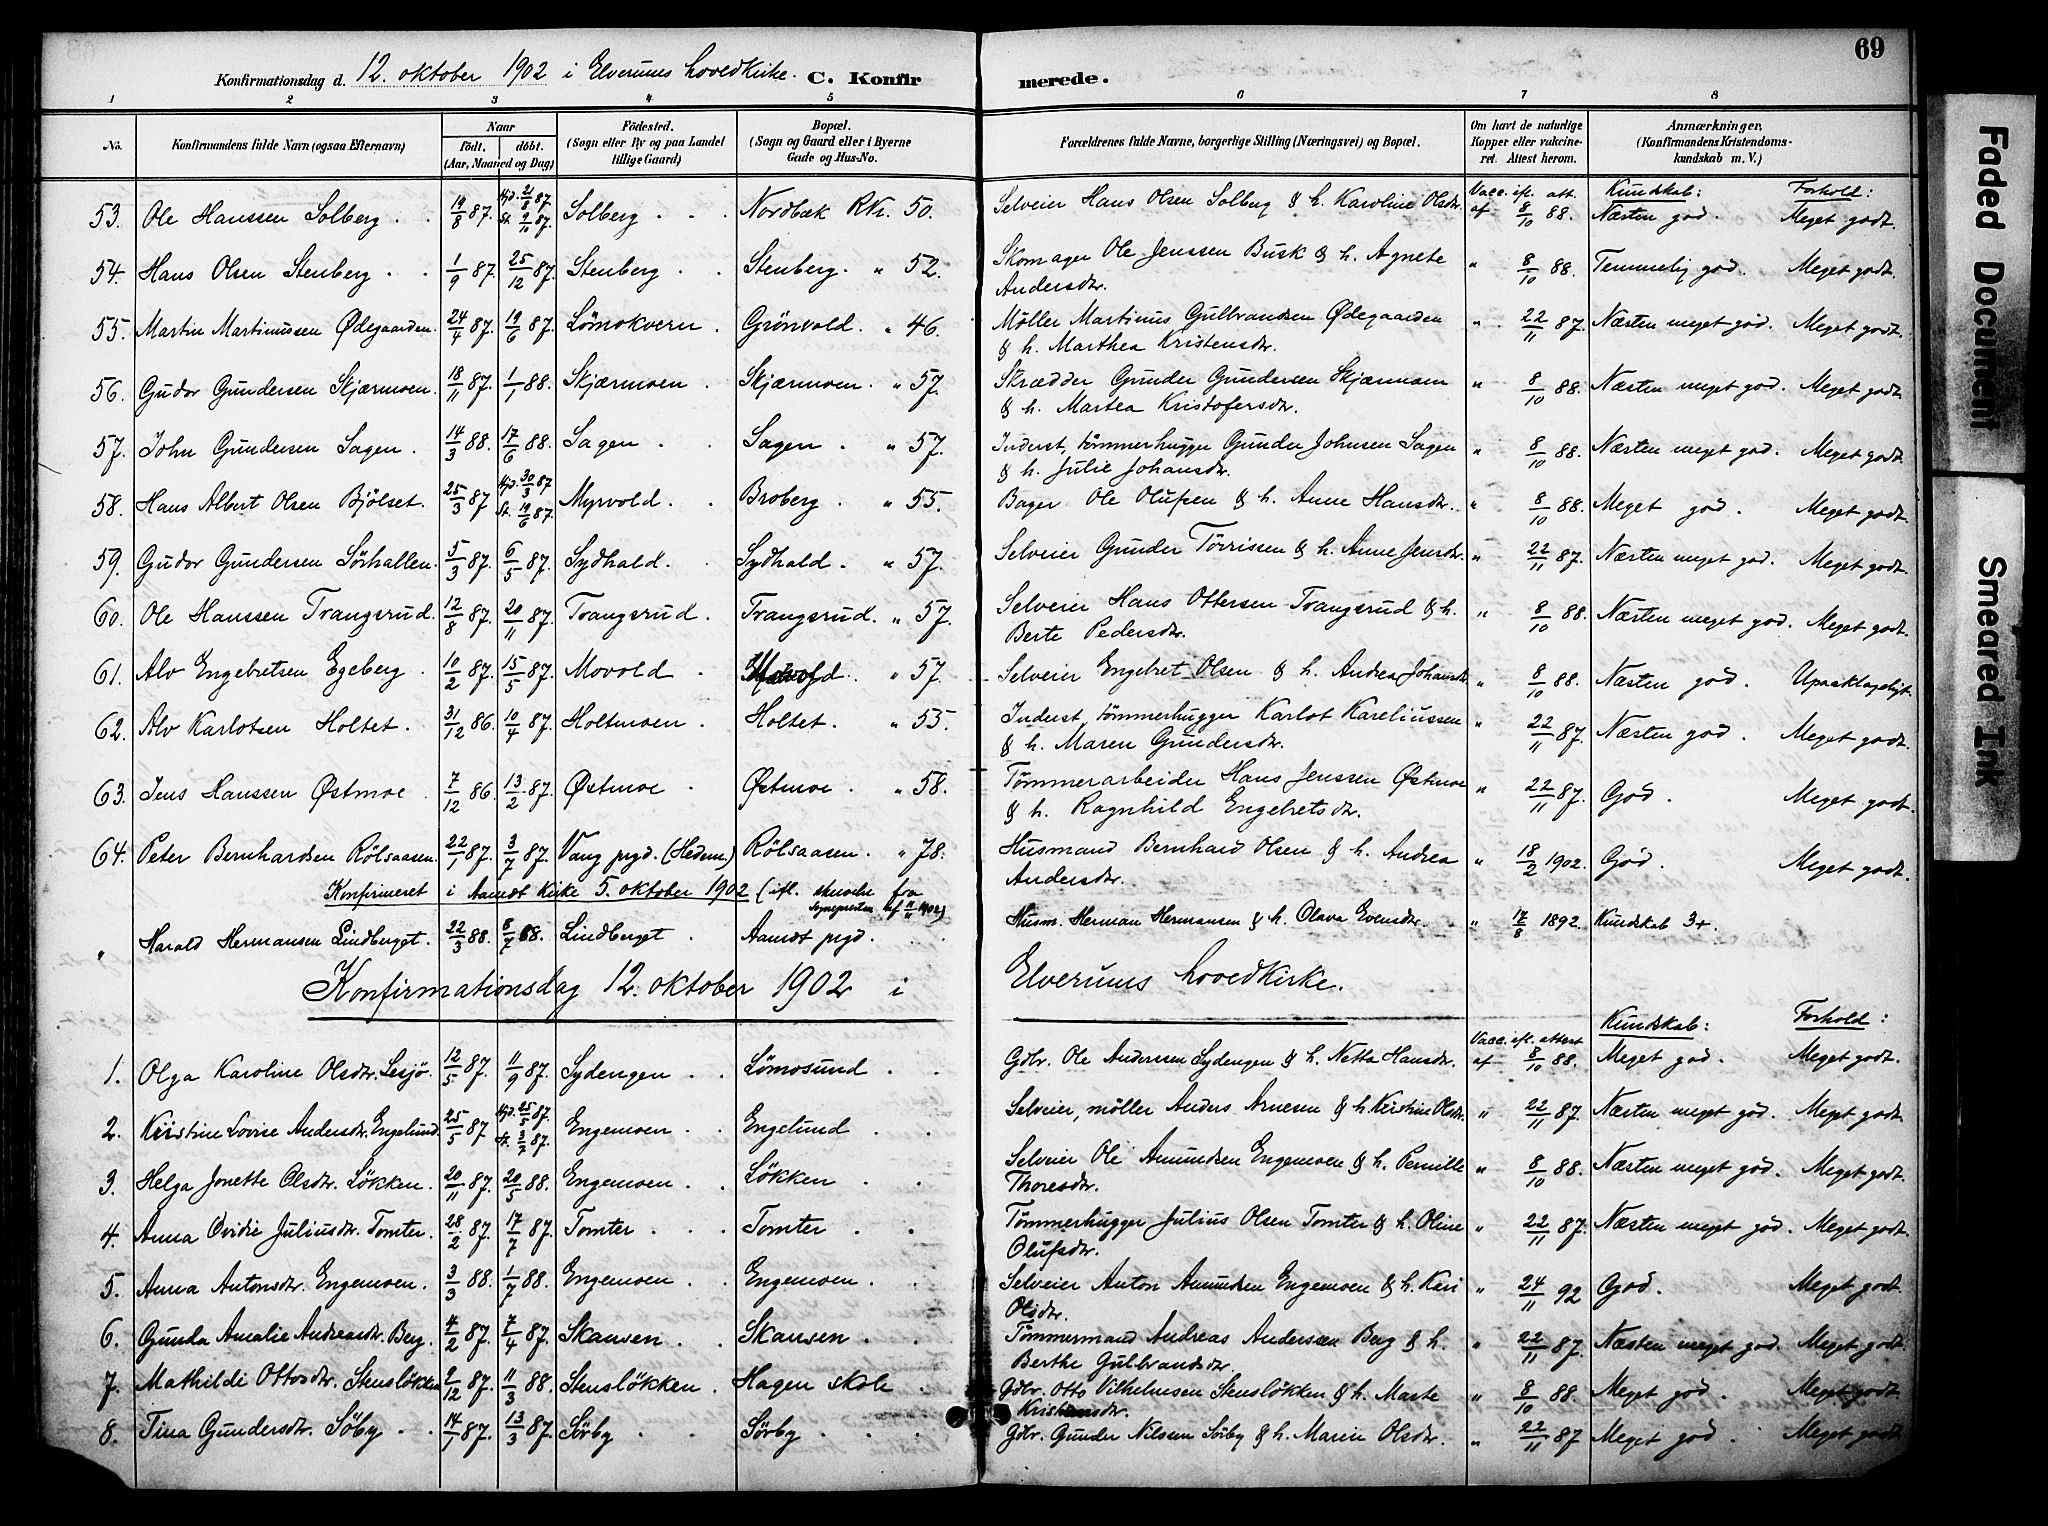 69
Konfirmationsdag d. 12. oktober 1902 i Elverums hovedkirke. C. Konfirmerede.
1 2 3 4 5 6 7 8
No. Konfirmandens fulde Navn (ogsaa Efternavn) Naar födt. döbt. (Aar, Maaned og Dag) Födested. (Sogn eller By og paa Landet tillige Gaard) Bopæl. (Sogn og Gaard eller i Byerne Gade og Hus-No. Forældrenes fulde Navne, borgerlige Stilling (Næringsvei) og Bopæl. Om havt de naturlige Kopper eller vaccineret. Attest herom. Anmærkninger. (Konfirmandens Kristendomskundskab m. V.)
Kundskab: Forhold:
53. Ole Hanssen Solberg 19/8 87. Hjd. 21/8 87 St. 9/10 87. Solberg Nordbæk RKr. 50. Selveier Hans Olsen Solberg & h. Karoline Olsdtr. Vacc. ifl. att. af 8/10 88. Næsten god. Meget godt.
54. Hans Olsen Stenberg 1/9 87. 25/12 87. Stenberg Stenberg. " 52. Skomager Ole Jenssen Busk & h. Agnete Andersdtr. " 8/10 88. Temmelig god. Meget godt.
55. Martin Martinussen Ødegaarden. 24/4 87. 19/6 87. Lömokvern Grönvold. " 46. Møller Martinus Gulbrandsen Ødegaarden & h. Marthea Kristensdtr. " 22/11 87. Næsten meget god. Meget godt.
56. Gudor Gundersen Skjærmoen. 18/11 87. 1/1 88. Skjærmoen Skjærmoen. " 57. Skrædder Gunder Gundersen Skjærmoen & h. Martea Kristofersdtr. " 8/10 88. Næsten meget god. Meget godt.
57. John Gundersen Sagen. 14/3 88. 17/6 88. Sagen Sagen " 57. Inderst, tömmerhugger Gunder Johnsen Sagen & h. Julie Johansdtr. " 8/10 88. Næsten meget god. Meget godt.
58. Hans Albert Olsen Bjölset. 25/3 87 Hjd. 30/3 87 St. 19/6 87. Myrvold. Broberg " 55. Bager Ole Olufsen & h. Anne Hansdtr. " 8/10 88. Meget god. Meget godt.
59. Gudor Gundersen Sörhallen. 5/3 87. 6/5 87. Sydhald. Sydhald " 57. Selveier Gunder Törrissen & h. Anne Jensdtr. " 22/11 87. Næsten meget god. Meget godt.
60. Ole Hanssen Trangsrud. 12/8 87. 20/11 87. Trangsrud. Trangsrud. " 57. Selveier Hans Ottersen Trangsrud & h. Berte Pedersdtr. " 8/10 88. Næsten meget god. Meget godt.
61. Alv Engebretsen Egeberg. 10/2 87. 15/5 87. Movold " 57. Selveier Engebret Olsen & h. Andrea Johansdtr. " 8/10 88. Næsten god. Upaaklageligt.
62. Alv Karlotsen Holtet. 31/12 86. 10/4 87. Holtmoen Holtet. " 55. Inderst, tömmerhugger Karlot Kareliussen & h. Maren Gundersdtr. " 22/11 87. Næsten god. Meget godt.
63. Jens Hanssen Østmoe 7/12 86. 13/2 87. Østmoe Østmoe " 58. Tömmerarbeider Hans Jenssen Østmoe & h. Ragnhild Engebretsdtr. " 22/11 87. God. Meget godt.
64. Peter Bernhardsen Rölsaasen. 22/1 87. 3/7 87. Vang prgd. (Hedem.) Rölsaasen. " 78. Husmand Bernhard Olsen & h. Andrea Andersdtr. " 18/2 1902. God. Meget godt.
Konfirmeret i Aamot kirke 5. oktober 1902 (ifl. skrivelse fra Sognepresten af 11/11 1902)
" Harald Hermansen Lindberget. 22/3 88. 8/7 88. Lindberget. Aamot prgd. Husm. Herman Hermansen & h. Olava Evensdtr. " 17/8 1892. Kundskab 3+.
Konfirmationsdag 12. oktober 1902 i Elverums hovedkirke.
Kundskab: Forhold:
1. Olga Karoline Olsdtr. Lesjö. 12/5 87. 11/9 87. Sydengen Lömosund Gdbr. Ole Anderssen Sydengen & h. Netta Hansdtr. Vacc. ifl. attest af 8/10 88. Meget god. Meget godt.
2. Kristine Lovise Andersdtr. Engelund. 25/5 87 Hjd. 25/5 87. St. 3/7 87. Engemoen Engelund Selveier, möller Anders Arnesen & h. Kristine Olsdtr. " 22/11 87. Næsten meget god. Meget godt.
3. Helga Jonette Olsdtr. Lökken. 20/11 87. 20/5 88. Engemoen Lökken Selveier Ole Amundsen Engemoen & h. Pernille Thoresdtr. " 8/10 88. Næsten meget god. Meget godt.
4. Anna Ovidie Juliusdtr. Tomter. 28/2 87. 17/7 87. Tomter Tomter Tömmerhugger Julius Olsen Tomter & h. Oline Olufsdtr. " 22/11 87. Næsten meget god. Meget godt.
5. Anna Antonsdtr. Engemoen. 3/3 88. 1/7 88. Engemoen. Engemoen. Selveier Anton Amundsen Engemoen & h. Kari Olsdtr. " 24/11 92 God. Meget godt.
6. Gunda Amalie Andreasdtr. Berg. 4/2 87. 7/4 87. Skansen Skansen Tömmermand Andreas Andersen Berg & h. Berthe Gulbrandsdtr. " 22/11 87. Næsten meget god. Meget godt.
7. Mathilde Ottosdtr. Stenslökken 2/12 87. 11/3 88. Stenslökken. Hagen skole Gdbr. Otto Vilhelmsen Stenslökken & h. Marte Kristensdtr. " 8/10 88. Meget god. Meget godt.
8. Tina Gundersdtr. Söby 14/1 87. 13/3 87. Sörby Sörby Gdbr. Gunder Nilsen Sörby & h. Maren Olsdtr. " 22/11 87 Meget god. Meget godt.
Faded Document
Smeared Ink